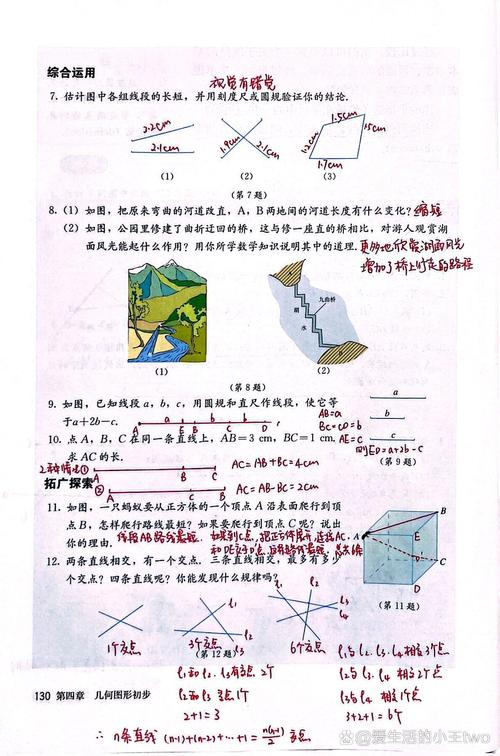 综合运用
视觉有错觉
7. 估计图中各组线段的长短，并用刻度尺或圆规验证你的结论.
2.2cm
2.1cm
1.9cm
2.1cm
1.5cm
1.2cm
1.5cm
1.7cm
(1)
(2)
(3)
(第 7 题)
8. (1) 如图，把原来弯曲的河道改直，A，B 两地间的河道长度有什么变化? 缩短
(2) 如图，公园里修建了曲折迂回的桥，这与修一座直的桥相比，对游人观赏湖
面风光能起什么作用? 用你所学数学知识说明其中的道理. 更多地欣赏湖面风光
增加了桥上行走的路程
九曲桥
湖
水
A
B
(1)
(2)
(第 8 题)
9. 如图，已知线段 a，b，c，用圆规和直尺作线段，使它等
于 a+2b−c.
a
b
b
A
E
B
C
D
AB=a
BC=CD=b
AE=C
则ED=a+2b-c
a
b
c
(第 9 题)
10. 点 A，B，C 在同一条直线上，AB=3 cm，BC=1 cm.
求 AC 的长.
2种情况①
A
B
C
AC=AB+BC=4cm
②
A
C
B
AC=AB-BC=2cm
拓广探索
11. 如图，一只蚂蚁要从正方体的一个顶点 A 沿表面爬行到顶
点 B，怎样爬行路线最短? 如果要爬行到顶点 C 呢? 说出
你的理由.
线段AB路线最短.
A
B
E
C
D
(第 11 题)
12. 两条直线相交，有一个交点. 三条直线相交，最多有多少
个交点? 四条直线呢? 你能发现什么规律吗?
l₁
l₂
l₃
l₁
l₂
l₃
l₄
1个交点
3个交点
6个交点
(第 12 题)
l₁和l₂.l₃有交点 2个
l₂和l₃ 交点1个
2+1=3
l₁与l₂.l₃.l₄相交3个点
l₂与l₃.l₄ 相交2个点
l₃与l₄ 相交1个点
3+2+1=6个
∴ n条直线 (n-1)+(n-2)+…+1=n(n-1)/2 交点
130 第四章 几何图形初步
@爱生活的小王two